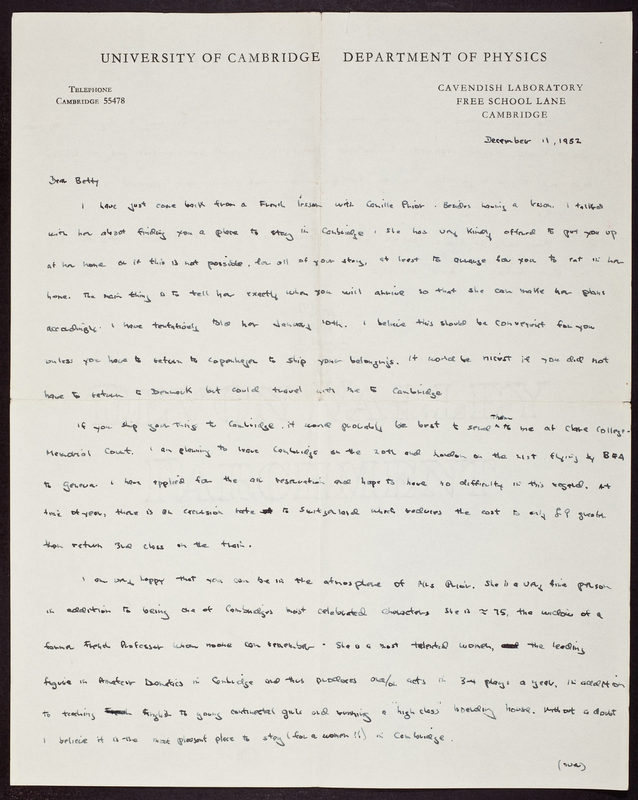 UNIVERSITY OF CAMBRIDGE DEPARTMENT OF PHYSICS
TELEPHONE
CAMBRIDGE 55478
CAVENDISH LABORATORY
FREE SCHOOL LANE
CAMBRIDGE
December 11, 1952
Dear Betty
I have just come back from a French lesson with Camille Prior. Besides having a lesson, I talked
with her about finding you a place to stay in Cambridge. She has very kindly offered to put you up
at her home or if this is not possible, for all of your stay, at least to arrange for you to eat in her
home. The main thing is to tell her exactly when you will arrive so that she can make her plans
accordingly. I have tentatively told her January 10th. I believe this should be convenient for you
unless you have to return to Copenhagen to ship your belongings. It would be nicest if you did not
have to return to Denmark but could travel with me to Cambridge
If you ship your things to Cambridge, it would probably be best to send them to me at Clare College-
Memorial Court. I am planning to leave Cambridge on the 20th and London on the 21st flying by BEA
to Geneva. I have applied for the air reservation and hope to have no difficulty in this regard. At
time of year, there is an excursion rate to Switzerland which reduces the cost to only £9 greater
than return 3rd class on the train.
I am very happy that you can be in the atmosphere of Mrs Prior. She is a very fine person
in addition to being one of Cambridges most celebrated characters. She is ≈ 75, the widow of a
former French Professor whom noone can remember. She is a most talented woman, the leading
figure in Amateur Dramatics in Cambridge and thus produces and/or acts in 3-4 plays a year, in addition
to teaching English to young continental girls and running a "high class" boarding house. Without a doubt
I believe it is the most pleasant place to stay (for a woman!!) in Cambridge.
(over)